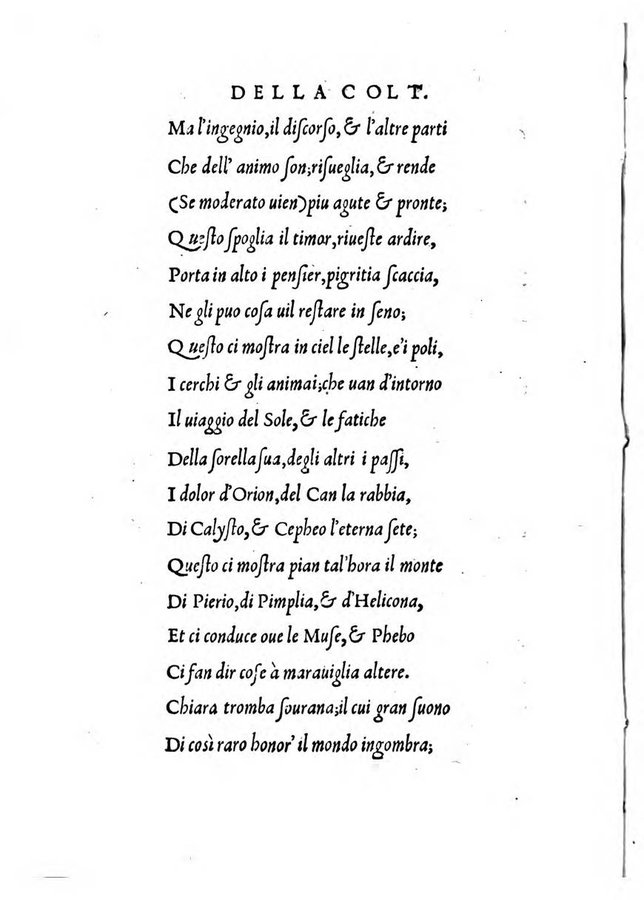 DELLA COLT.
Ma l'ingegnio,il diſcorſo,& l'altre parti
Che dell' animo ſon;riſueglia,& rende
(Se moderato uien)piu agute & pronte;
Queſto ſpoglia il timor,riueſte ardire,
Porta in alto i penſier,pigritia ſcaccia,
Ne gli puo coſa uil reſtare in ſeno;
Queſto ci moſtra in ciel le ſtelle,e'i poli,
I cerchi & gli animai;che uan d'intorno
Il uiaggio del Sole,& le fatiche
Della ſorella ſua,degli altri i paſſi,
I dolor d'Orion,del Can la rabbia,
Di Calyſto,& Cepheo l'eterna ſete;
Queſto ci moſtra pian tal'hora il monte
Di Pierio,di Pimplia,& d'Helicona,
Et ci conduce oue le Muſe,& Phebo
Ci fan dir coſe à marauiglia altere.
Chiara tromba ſourana;il cui gran ſuono
Di così raro honor' il mondo ingombra;